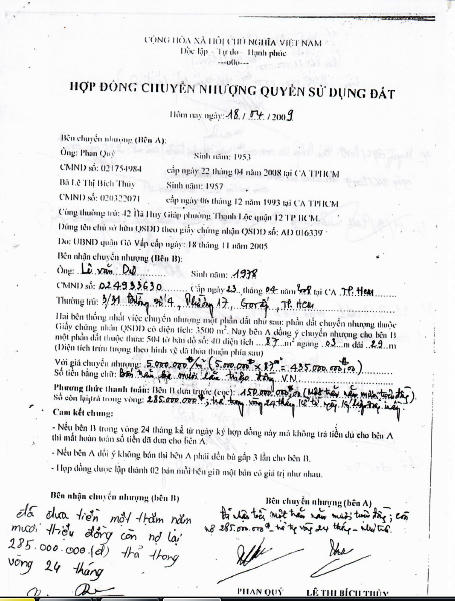 CỘNG HÒA XÃ HỘI CHỦ NGHĨA VIỆT NAM
Độc lập - Tự do - Hạnh phúc
---o0o---
HỢP ĐỒNG CHUYỂN NHƯỢNG QUYỀN SỬ DỤNG ĐẤT
Hôm nay ngày: 18 / 04 / 2009
Bên chuyển nhượng (Bên A):
Ông: Phan Quý Sinh năm: 1953
CMND số: 021754984 cấp ngày 22 tháng 04 năm 2008 tại CA TPHCM
Bà Lê Thị Bích Thủy Sinh năm: 1957
CMND số: 020322071 cấp ngày 06 tháng 12 năm 1993 tại CA TPHCM
Cùng thường trú: 42 Hà Huy Giáp phường Thạnh Lộc quận 12 TP HCM.
Đứng tên chủ sở hữu QSDĐ theo giấy chứng nhận QSDĐ số: AD 016339
Do: UBND quận Gò Vấp cấp ngày: 18 tháng 11 năm 2005
Bên nhận chuyển nhượng (Bên B):
Ông: Lê Văn Sinh năm: 1978
CMND số: 024933630 Cấp ngày 23 tháng 04 năm 2008 tại CA TP. HCM
Thường trú: 3/31 số 4, Phường 17, Gò Vấp, TP. HCM
Hai bên thống nhất việc chuyển nhượng một phần đất như sau: phần đất chuyển nhượng thuộc
Giấy chứng nhận QSDĐ có diện tích: 3500 m². Nay bên A đồng ý chuyển nhượng cho bên B
một phần đất thuộc thửa: 504 tờ bản đồ số: 40 diện tích ...87...m² ngang 03 m dài 29 m
(Diện tích trên tượng theo hình vẽ đã thỏa thuận phía sau)
Với giá chuyển nhượng: 5.000.000đ/m² (5.000.000đ x 87m² = 435.000.000,00đ)
Số tiền bằng chữ: Bốn trăm ba mươi lăm triệu đồng V.N
Phương thức thanh toán: Bên B đưa trước (cọc): 150.000.000,00 (Một trăm năm mươi triệu đồng)
Số còn lại trong vòng: 285.000.000đ, trả trong vòng 24 tháng kể từ ngày ký hợp đồng này.
- Cam kết chung:
- Nếu bên B trong vòng 24 tháng kể từ ngày ký hợp đồng này mà không trả tiền đủ cho bên A
thì mất hoàn toàn số tiền đã đưa cho bên A.
- Nếu bên A đổi ý không bán thì bên A phải đền bù gấp 3 lần cho bên B.
- Hợp đồng được lập thành 02 bản mỗi bên giữ một bản có giá trị như nhau.
Bên nhận chuyển nhượng (bên B)
đã đưa tiền một trăm năm
mươi triệu đồng còn nợ lại
285.000.000 (đ) trả trong
vòng 24 tháng
Bên chuyển nhượng (Bên A)
Đã nhận tiền một trăm năm mươi triệu đồng, còn
nợ 285.000.000đ trả 24 tháng
PHAN QUÝ LÊ THỊ BÍCH THỦY